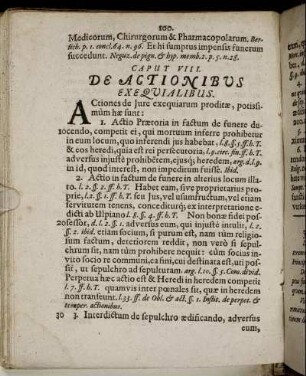 100.
Medicorum, Chirurgorum & Pharmacopolarum. Ber-
lich. p. 1. concl. 64. n. 96. Et hi sumptus impensis funerum
succedunt. Neguz. de pign. & hyp. memb. 2. p. 5. n. 25.
CAPUT VIII.
DE ACTIONIBVS
EXEQUIALIBUS.
ACtiones de Jure exequiarum proditæ, potissi-
mùm hæ sunt:
1. Actio Prætoria in factum de funere du-
10 cendo, competit ei, qui mortuum inferre prohibetur
in eum locum, quo inferendi jus habebat. l. 8. §. ff. h. T.
& eos heredi, quia est rei persecutoria, ff. h. T.
adversus injustè prohibētem, ejusq; heredem, arg. d. l. p.
in id, quod interest, non impedimm fuisse. ibid.
2. Actio in factum de funere in alterius locum illa-
to. l. 2. §. 2. ff. h. T. Habet eam, sive proprietarius pro-
priè, l. 2. §. 1. ff. h. T. seu Jus, vel usumfructum, vel etiam
servitutem tenens, conceditur q; ex interpretatione e-
dicti ab Ulpiano l. 8. §. 4. ff. h. T. Non bonæ fidei pos-
20 sessor, d. l. 2. §. 1. adversus eum, qui injustè intulit, l. 2.
§. 2. ibid. etiam socium, si purum est, nam nisi religio-
sum factum, deteriorem reddit, non verò si sepul-
chrum sit, nam nùm prohibere nequit: cùm socius in-
vito socio re communi, ea fini, cui destinata est, uti pos-
sit, ut sepulchro ad sepulturam. arg. l. 10. §. 3. Com. divid.
Perpetua hæc actio est & Heredi in heredem competit
l. 7. ff. h. T. quamvis inter pœnales sit, quæ in heredem
non transeunt. l. 33. ff. de Obl. & act. §. 1. Instit. de perpet. &
temper. actionibus.
30 3. Interdictum de sepulchro ædificando, adversus
eum,